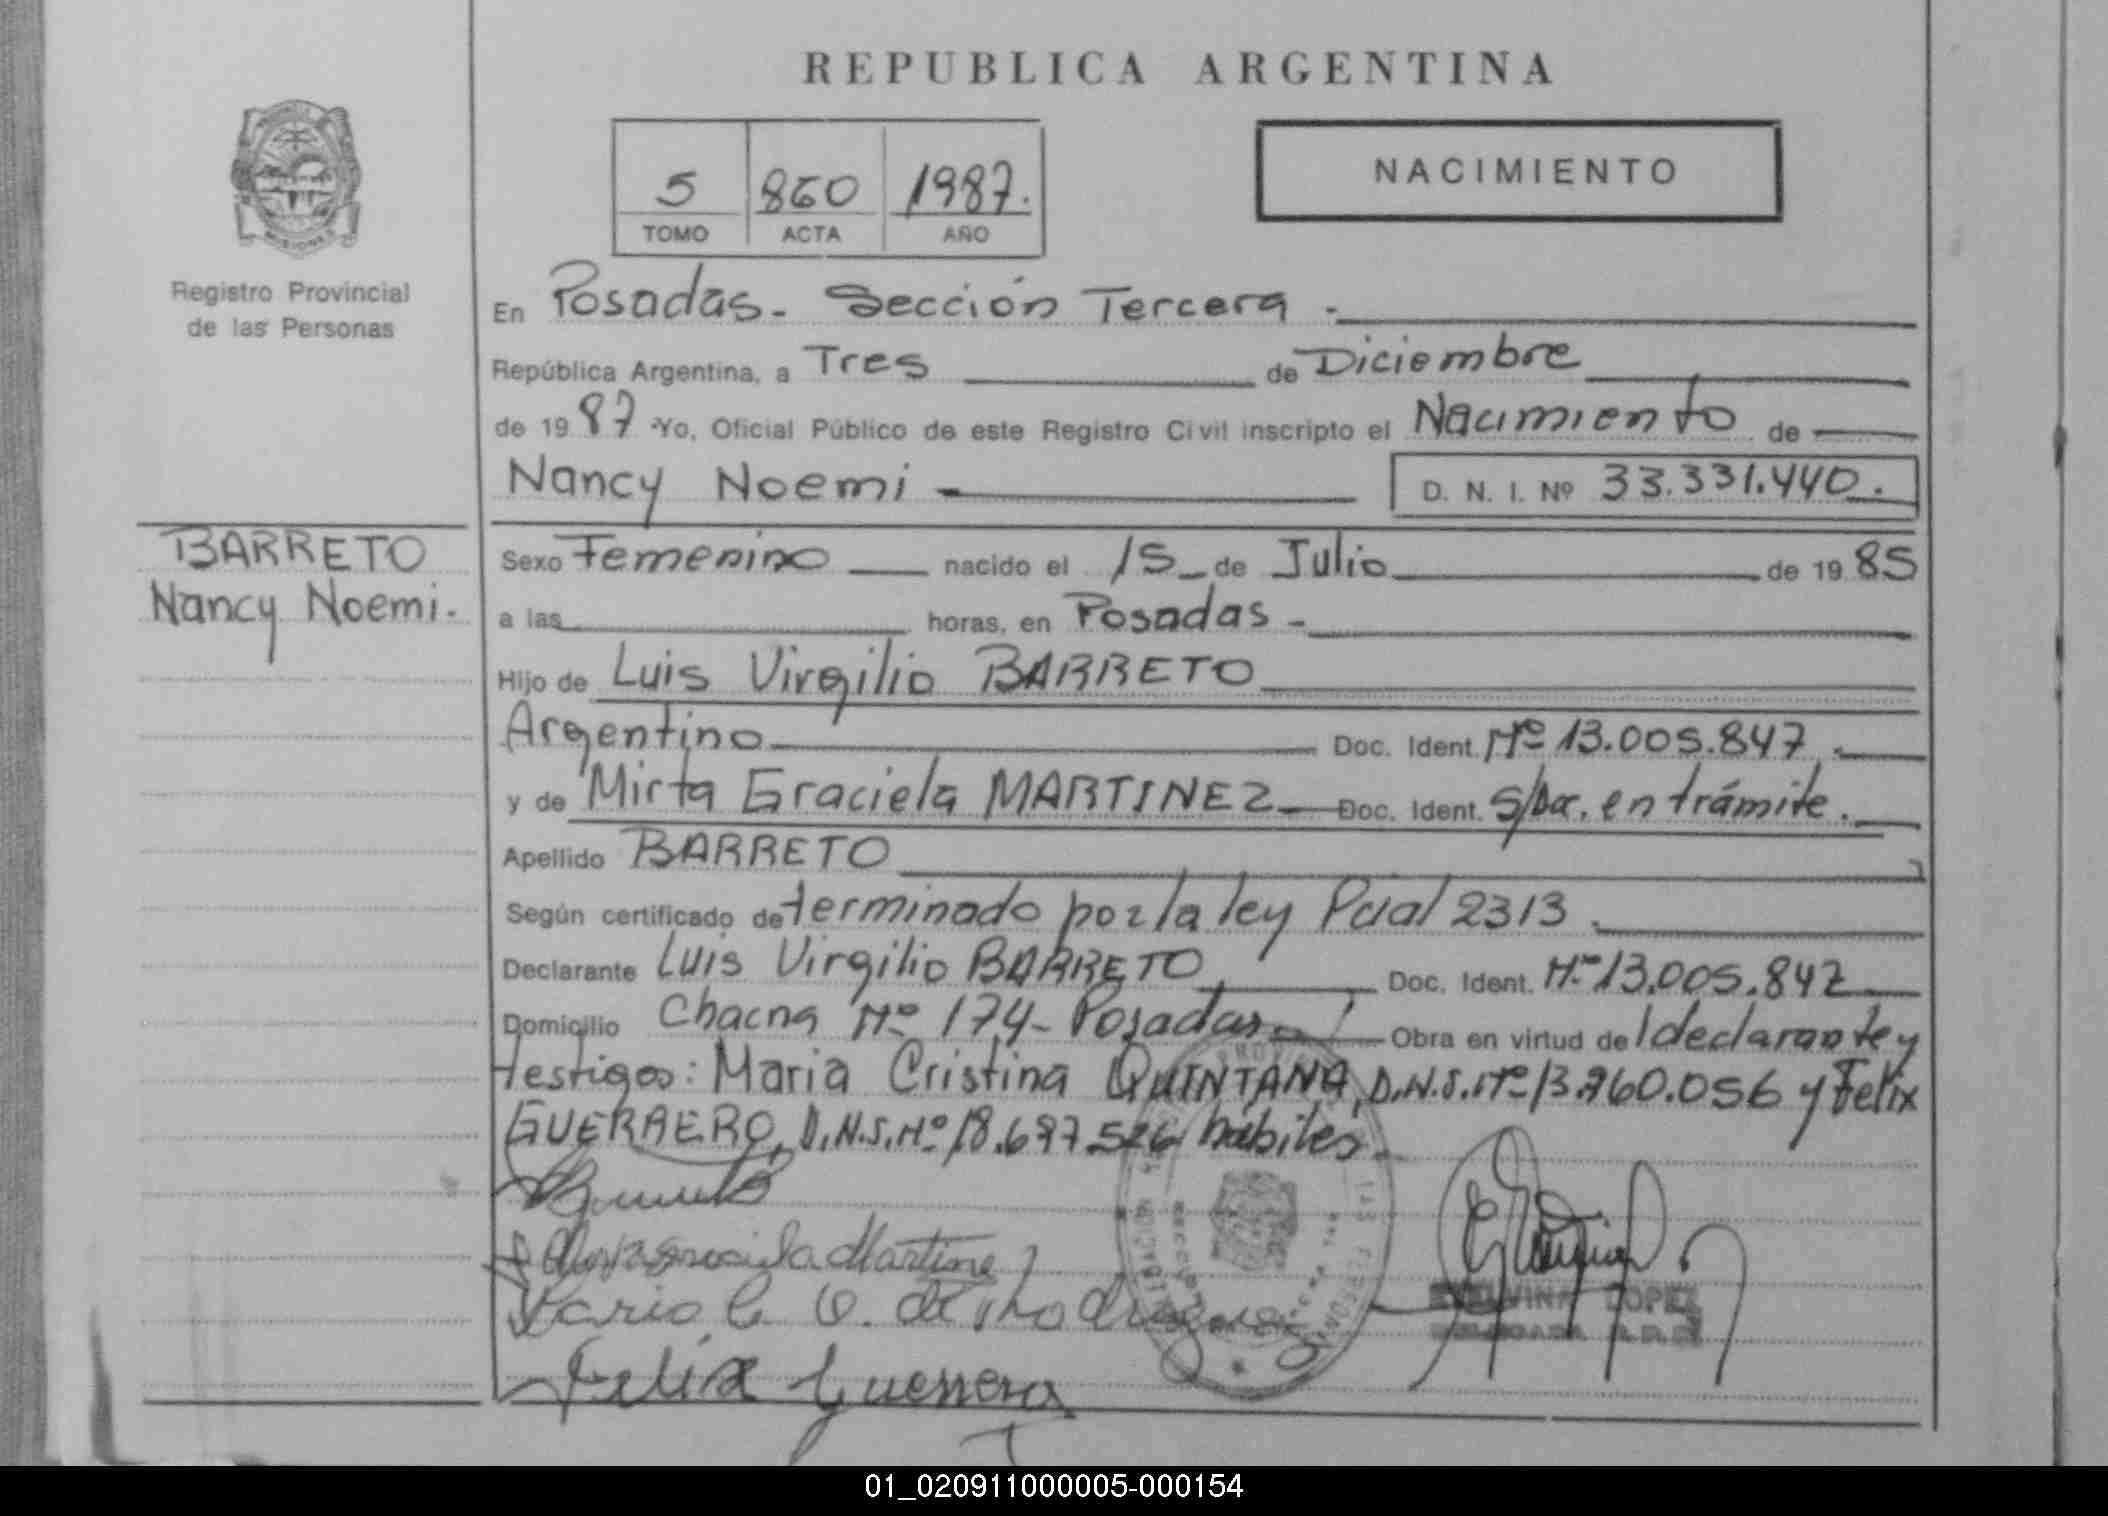 REPUBLICA ARGENTINA
NACIMIENTO
5 860 1987.
TOMO ACTA AÑO
Registro Provincial
de las Personas
MISIONES
BARRETO
Nancy Noemi.
En Posadas - Sección Tercera.-
República Argentina, a Tres de Diciembre
de 1987 Yo, Oficial Público de este Registro Civil inscripto el Nacimiento de
Nancy Noemi D. N. I. Nº 33.331.440.
Sexo Femenino nacido el 15 de Julio de 1985
a las horas, en Posadas -
Hijo de Luis Virgilio BARRETO
Argentino Doc. Ident. Nº 13.005.847.
y de Mirta Graciela MARTINEZ Doc. Ident. S/Doc. en trámite.
Apellido BARRETO
Según certificado determinado por la ley Pcial 2313.
Declarante Luis Virgilio BARRETO Doc. Ident. Nº 13.005.847
Domicilio Chacra Nº 174- Posadas Obra en virtud del declarante y
testigos: Maria Cristina QUINTANA, D.N.I. Nº 13.760.056 y Felix
GUERRERO, D.N.I. Nº 18.697.526 habiles
Martinez
Felix Guerrero
LOPEZ
01_020911000005-000154